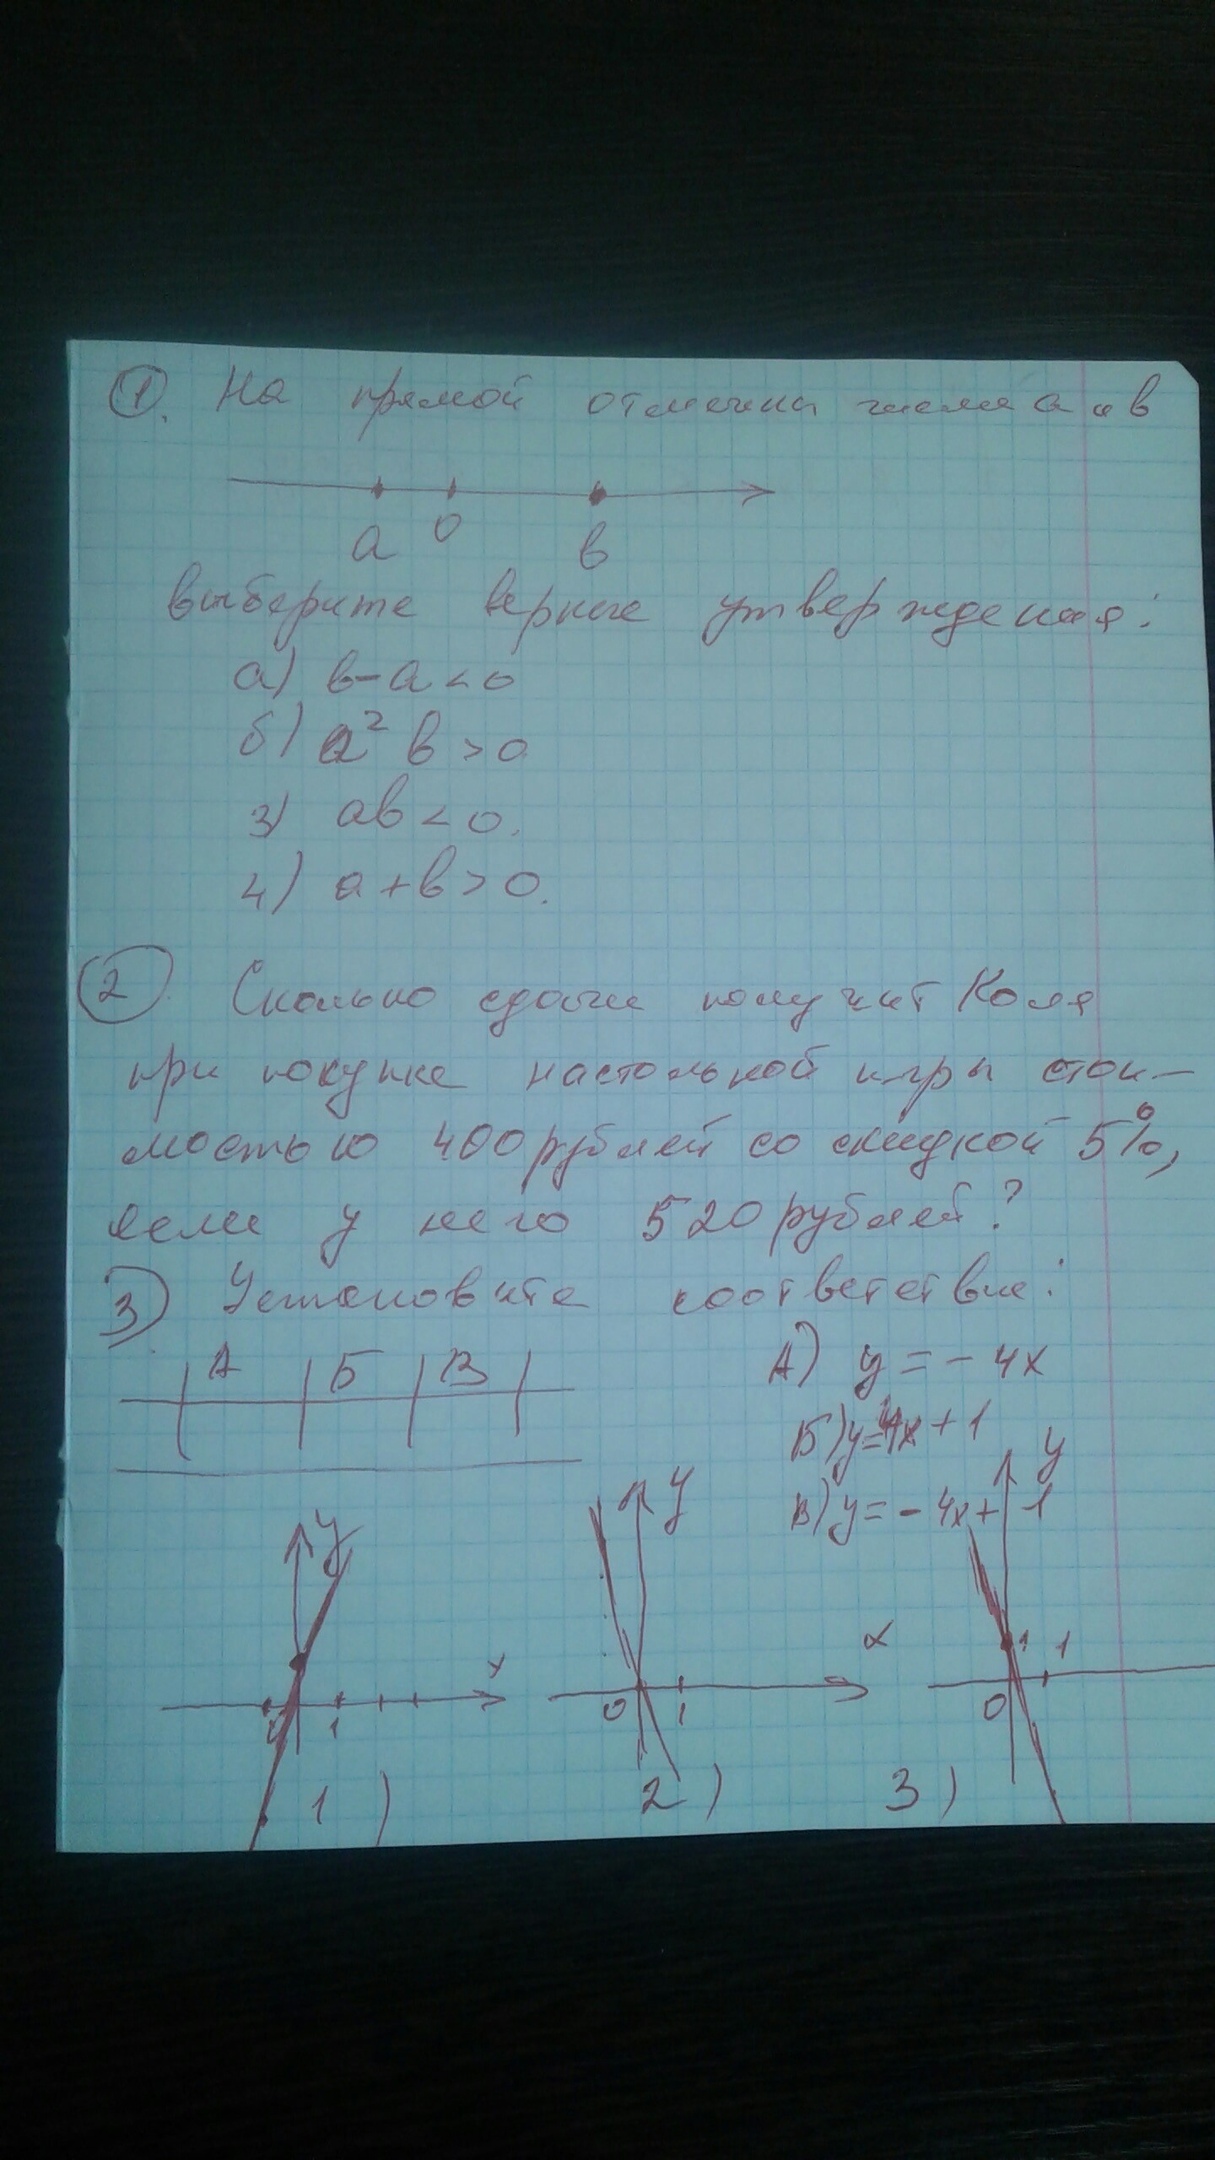 1. На прямой отмечены числа а и в
а 0 в
выберите верные утверждения:
а) в-а<0
б) а² в >0
3) ав<0.
4) а+в>0.
2. Сколько сдачи получит Коля
при покупке настольной игры стои-
мостью 400 рублей со скидкой 5%,
если у него 520 рублей?
3) Установите соответствие:
А Б В
А) у = - 4х
Б) у=4х + 1
В) у = - 4х+ 1
у х 0 1
у х 0 1
у 1 1 0
1) 2) 3)